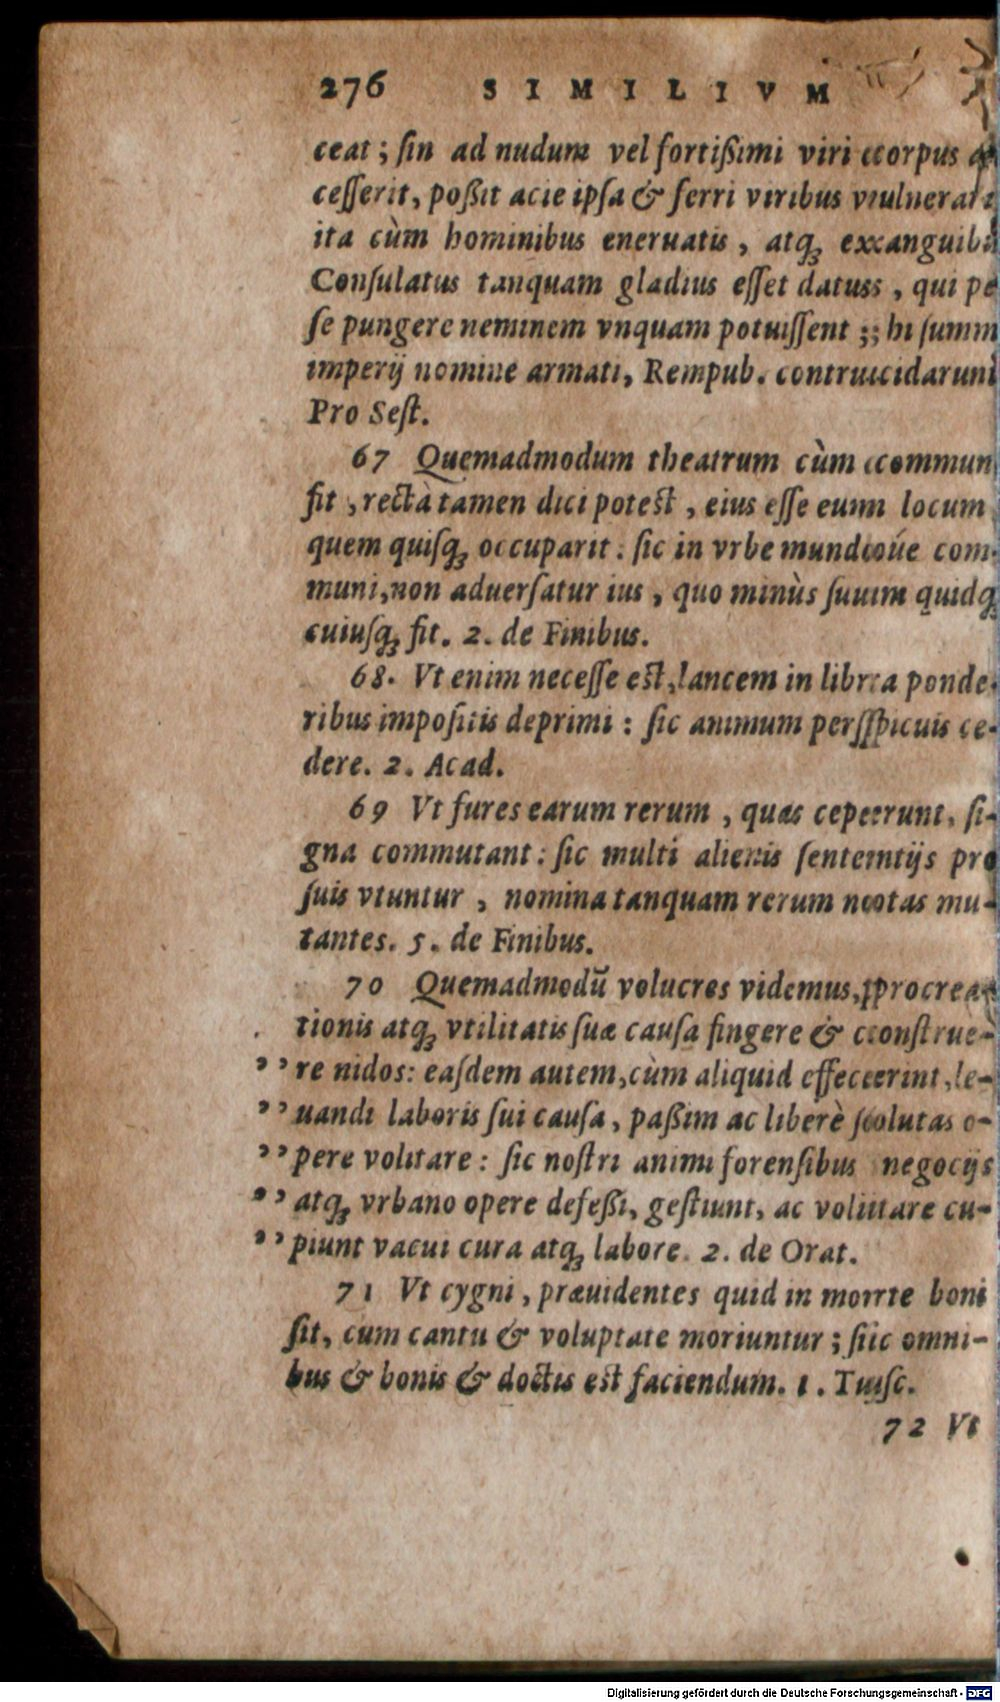 276 SIMILIVM
ceat; ſin ad nudum vel fortißimi viri corpus
ceſſerit, poßit acie ipſa & ferri viribus vulnerari
ita cùm hominibus eneruatis, atq; exanguibu
Conſulatus tanquam gladius eſſet datus, qui pe
ſe pungere neminem vnquam potuiſſent; hi ſumm
imperij nomine armati, Rempub. contrucidarunt
Pro Seſt.
67 Quemadmodum theatrum cùm commun
ſit, rectà tamen dici poteſt, eius eſſe eum locum
quem quiſq; occuparit: ſic in vrbe mundoúe com-
muni, non aduerſatur ius, quo minùs ſuum quidq;
cuiuſq; ſit. 2. de Finibus.
68. Vt enim neceſſe eſt, lancem in libra ponde-
ribus impoſitis deprimi: ſic animum perſpicuis ce-
dere. 2. Acad.
69 Vt fures earum rerum, quas ceperunt, ſi-
gna commutant: ſic multi alienis ſententijs pro
ſuis vtuntur, nomina tanquam rerum notas mu-
tantes. 5. de Finibus.
70 Quemadmodũ volucres videmus, procrea-
tionis atq; vtilitatis ſuæ cauſa fingere & conſtrue-
,, re nidos: eaſdem autem, cùm aliquid effecerint, le-
,, uandi laboris ſui cauſa, paßim ac liberè ſolutas o-
,, pere volitare: ſic noſtri animi forenſibus negocijs
,, atq; vrbano opere defeßi, geſtiunt, ac volitare cu-
,, piunt vacui cura atq; labore. 2. de Orat.
71 Vt cygni, præuidentes quid in morte boni
ſit, cum cantu & voluptate moriuntur; ſic omni-
bus & bonis & doctis eſt faciendum. 1. Tuſc.
72 Vt
Digitalisierung gefördert durch die Deutsche Forschungsgemeinschaft - DFG